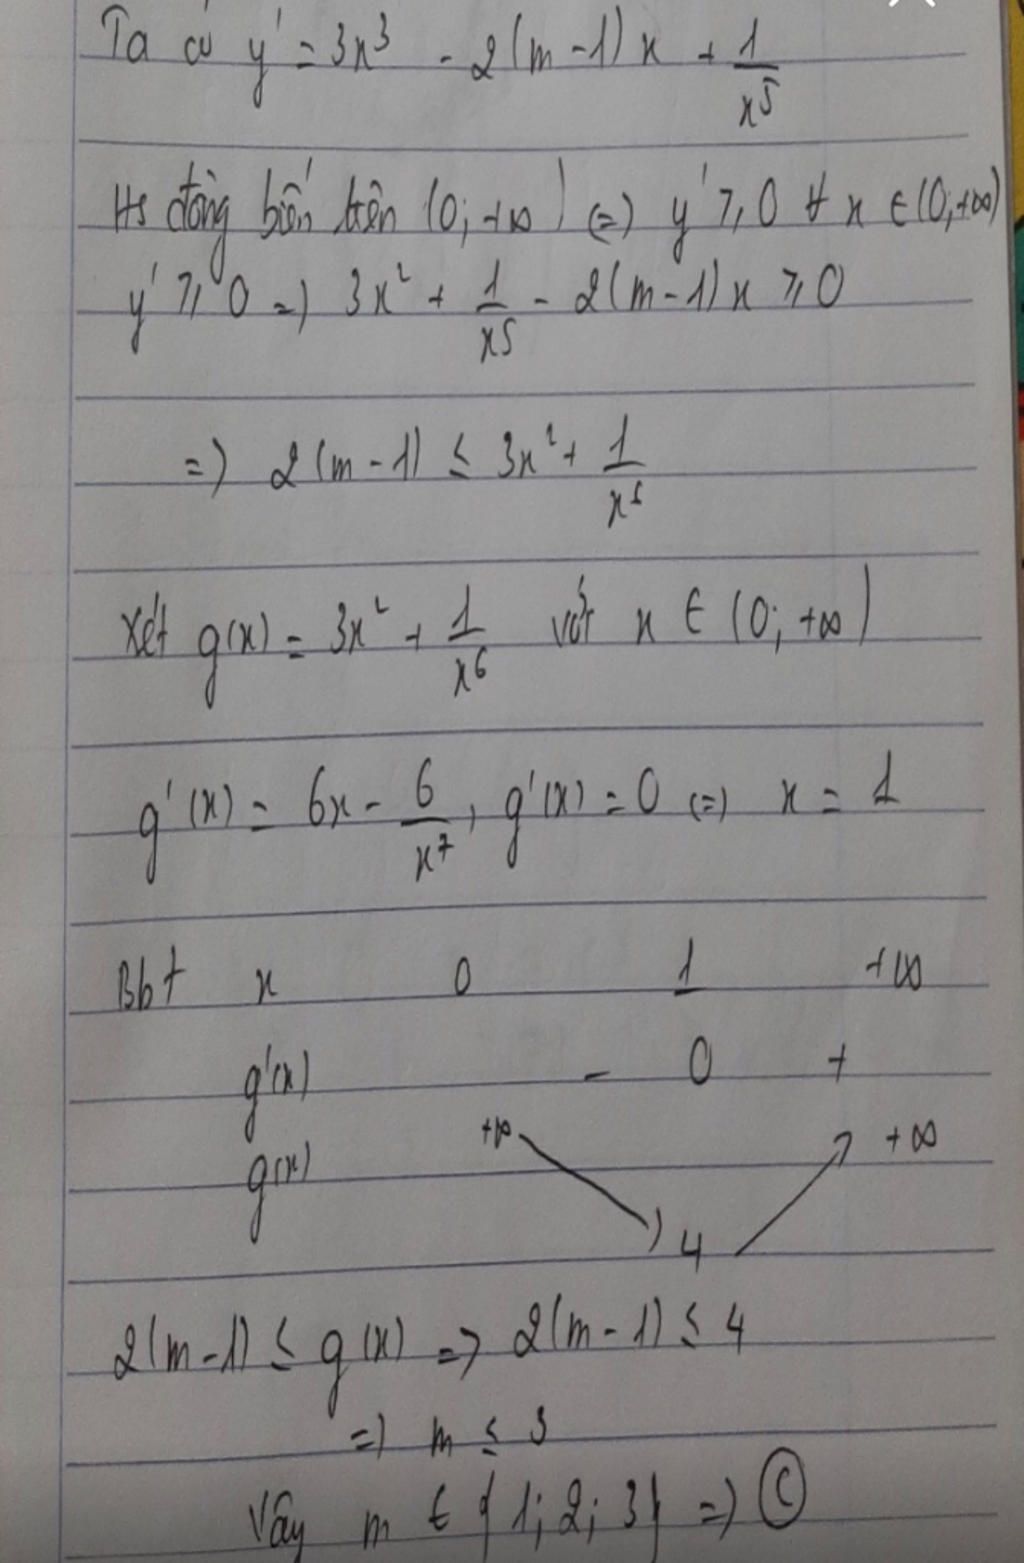 Ta có y' = 3x³ - 2(m-1)x + 1/x⁵
Hs đồng biến trên (0; +∞) (=) y' ≥ 0 ∀ x ∈ (0; +∞)
y' ≥ 0 =) 3x² + 1/x⁵ - 2(m-1)x ≥ 0
=) 2(m-1) ≤ 3x² + 1/x⁶
Xét g(x) = 3x² + 1/x⁶ với x ∈ (0; +∞)
g'(x) = 6x - 6/x⁷, g'(x) = 0 (=) x = 1
Bbt x 0 1 +∞
g'(x) - 0 +
g(x) +∞ 4 +∞
2(m-1) ≤ g(x) => 2(m-1) ≤ 4
=) m ≤ 3
Vậy m ∈ {1; 2; 3} =) C